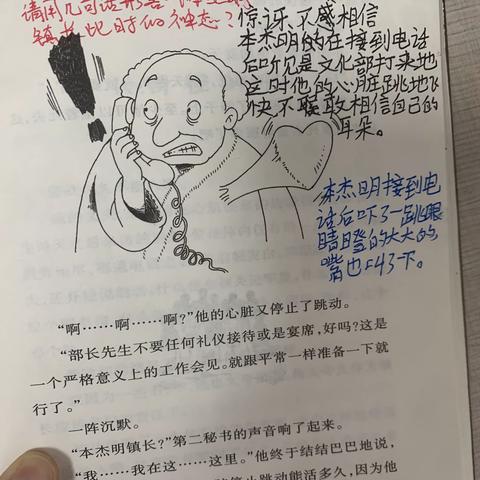 请用几句话形容
镇长此时的神态？
惊讶、不感相信
本杰明的在接到电话
后听见是文化部打来地
这时他的心脏跳地飞
快不敢相信自己的
耳朵。
本杰明接到电
话后吓了一跳眼
睛瞪的大大的
嘴也叫了一下。
“啊……啊……啊？”他的心脏又停止了跳动。
“部长先生不要任何礼仪接待或是宴席，好吗？这是
一个严格意义上的工作会见。就跟平常一样准备一下就
行了。”
一阵沉默。
“本杰明镇长？”第二秘书的声音响了起来。
“我……我在这……这里。”他终于结结巴巴地说，
停止跳动能活多久，因为他